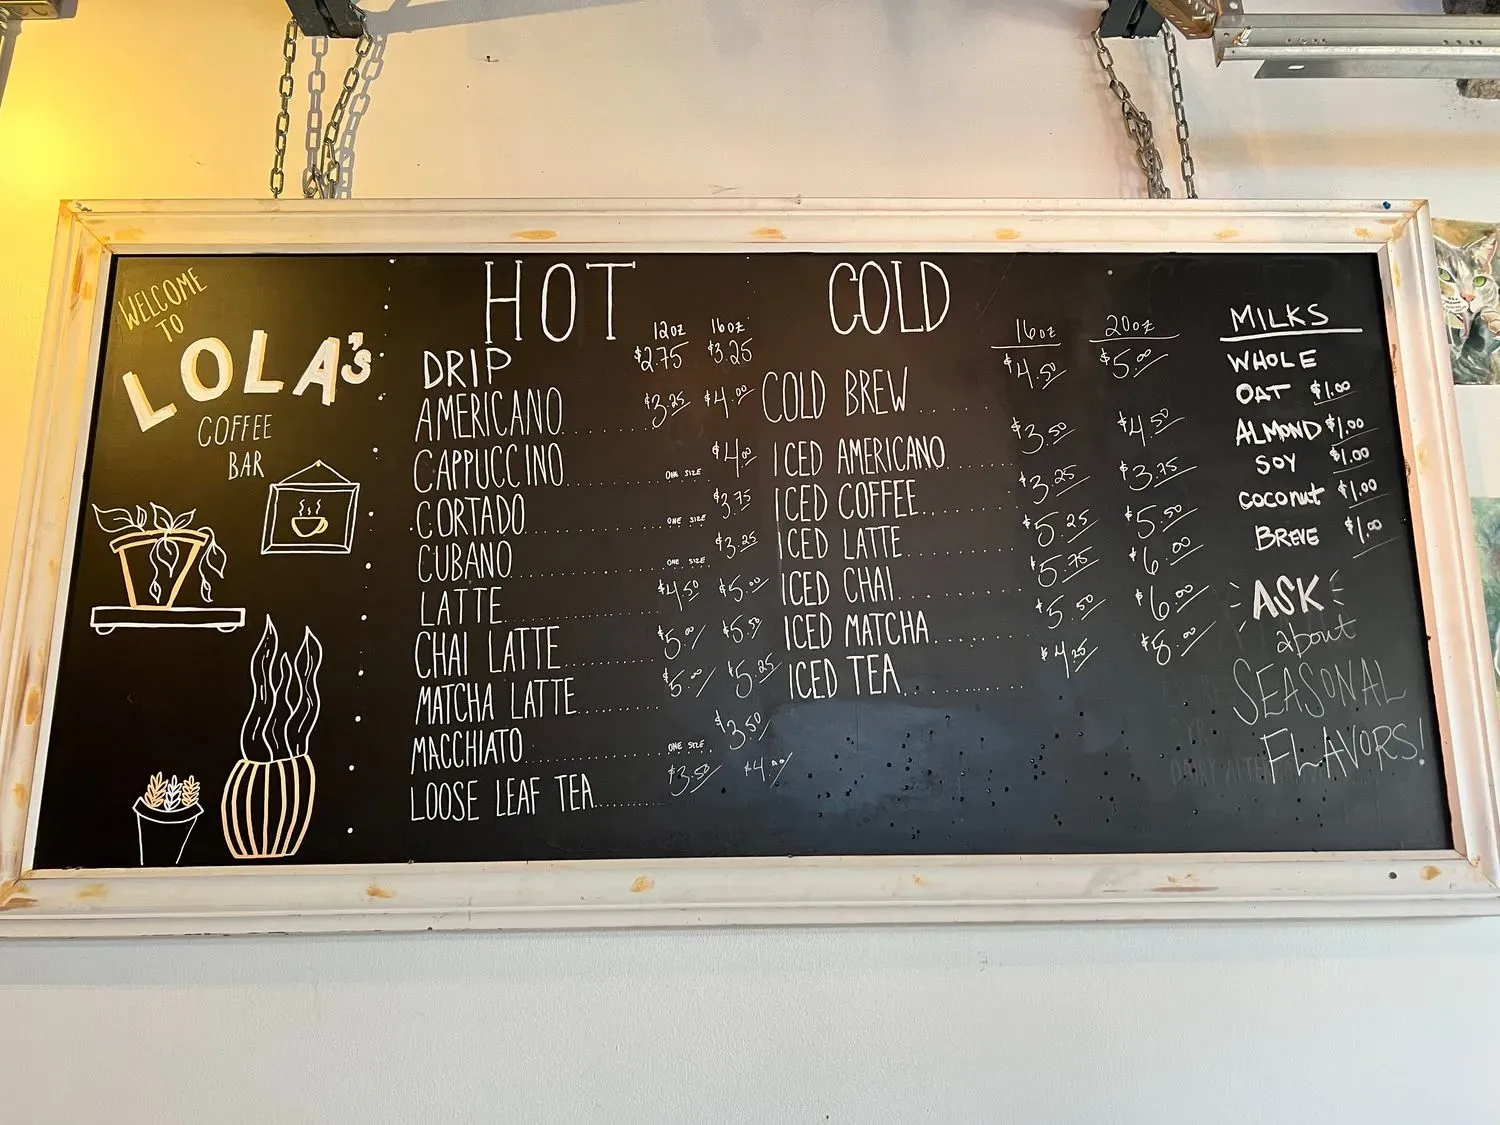 WELCOME
TO
LOLA's
COFFEE
BAR
HOT
12oz 16oz
DRIP $2.75 $3.25
AMERICANO $3.25 $4.00
CAPPUCCINO ONE SIZE $4.00
CORTADO ONE SIZE $3.75
CUBANO ONE SIZE $3.25
LATTE $4.50 $5.00
CHAI LATTE $5.00 $5.50
MATCHA LATTE $5.00 $5.25
MACCHIATO ONE SIZE $3.50
LOOSE LEAF TEA $3.50 $4.00
COLD
16oz 20oz
COLD BREW $4.50 $5.00
ICED AMERICANO $3.50 $4.50
ICED COFFEE $3.25 $3.75
ICED LATTE $5.25 $5.50
ICED CHAI $5.75 $6.00
ICED MATCHA $5.50 $6.00
ICED TEA $4.25 $8.00
MILKS
WHOLE
OAT $1.00
ALMOND $1.00
SOY $1.00
COCONUT $1.00
BREVE $1.00
ASK
about
SEASONAL
FLAVORS!